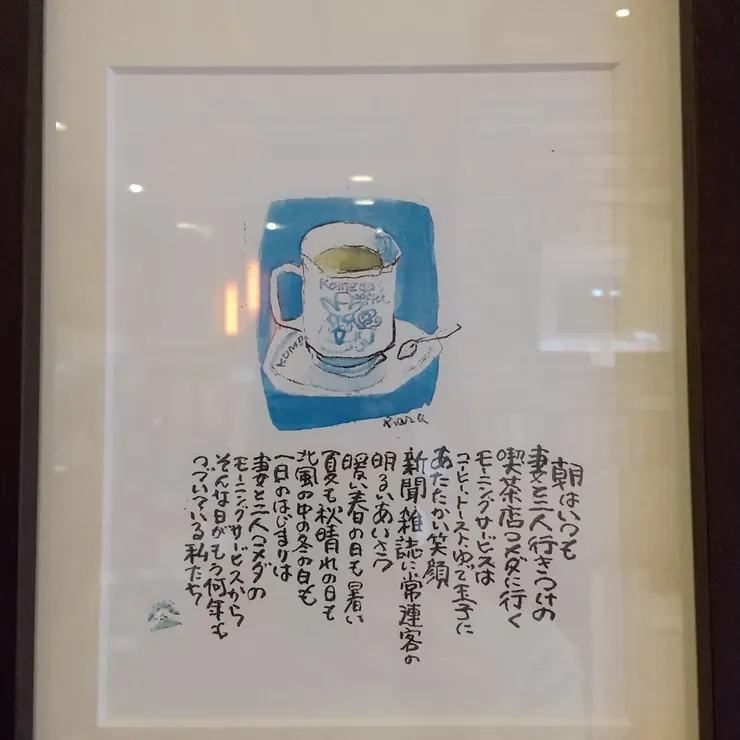 Komeda's
Coffee
KOME
朝はいつも
妻と二人行きつけの
喫茶店コメダに行く
モーニングサービスは
コーヒートーストゆで玉子に
あたたかい笑顔
新聞雑誌に常連客の
明るいあいさつ
暖い春の日も暑い
夏も秋晴れの日も
北風の中の冬の日も
一日のはじまりは
妻と二人コメダの
モーニングサービスから
そんな日がもう何年も
つづいている私たち